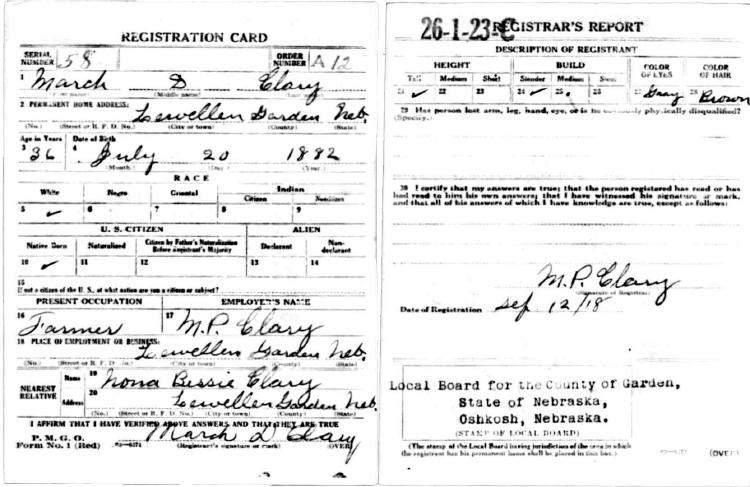 REGISTRATION CARD
SERIAL NUMBER 58 ORDER NUMBER A12
1 March D Clary
(Middle name)
2 PERMANENT HOME ADDRESS:
Lewellen Garden Neb.
(No.) (Street or R. F. D. No.) (City or town) (County) (State)
Age in Years Date of Birth
3 36 4 July 20 1882
(Month.) (Day.) (Year.)
RACE
White Negro Oriental Indian
Citizen Noncitizen
5 ✓ 6 7 8 9
U. S. CITIZEN ALIEN
Native Born Naturalized Citizen by Father's Naturalization Before Registrant's Majority Declarant Non-declarant
10 ✓ 11 12 13 14
15
If not a citizen of the U. S., of what nation are you a citizen or subject?
PRESENT OCCUPATION EMPLOYER'S NAME
16 Farmer 17 M.P. Clary
18 PLACE OF EMPLOYMENT OR BUSINESS:
Lewellen Garden Neb.
(No.) (Street or R. F. D. No.) (City or town) (County) (State)
NEAREST RELATIVE Name 19 Nona Bessie Clary
Address 20 Lewellen Garden Neb
(No.) (Street or R. F. D. No.) (City or town) (County) (State)
I AFFIRM THAT I HAVE VERIFIED ABOVE ANSWERS AND THAT THEY ARE TRUE
P. M. G. O.
Form No. 1 (Red) March D Clary
(Registrant's signature or mark) (OVER)
26-1-23-C REGISTRAR'S REPORT
DESCRIPTION OF REGISTRANT
HEIGHT BUILD COLOR OF EYES COLOR OF HAIR
Tall Medium Short Slender Medium Stout
21 ✓ 22 23 24 ✓ 25 26 27 Gray 28 Brown
29 Has person lost arm, leg, hand, eye, or is he obviously physically disqualified?
(Specify.)
30 I certify that my answers are true; that the person registered has read or has
had read to him his own answers; that I have witnessed his signature or mark,
and that all of his answers of which I have knowledge are true, except as follows:
M.P. Clary
(Signature of Registrar)
Date of Registration Sep 12/18
Local Board for the County of Garden,
State of Nebraska,
Oshkosh, Nebraska.
(STAMP OF LOCAL BOARD)
(The stamp of the Local Board having jurisdiction of the area in which
the registrant has his permanent home shall be placed in this box.)
(OVER)